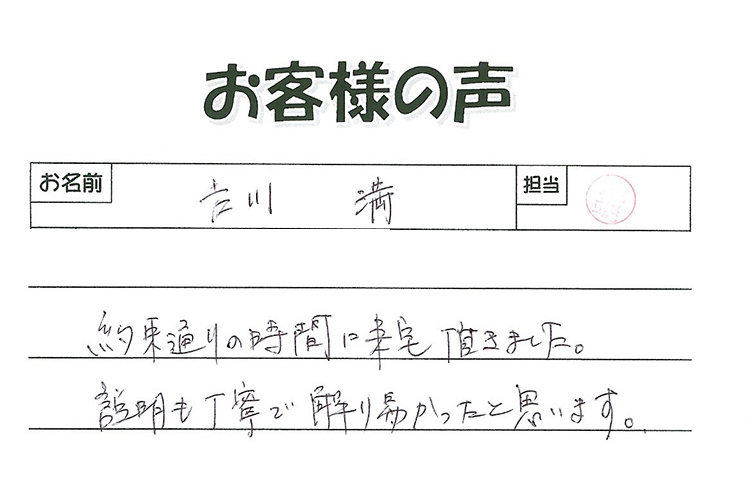 お客様の声
お名前 吉川 満 担当
約束通りの時間に来宅頂きました。
説明も丁寧で解り易かったと思います。